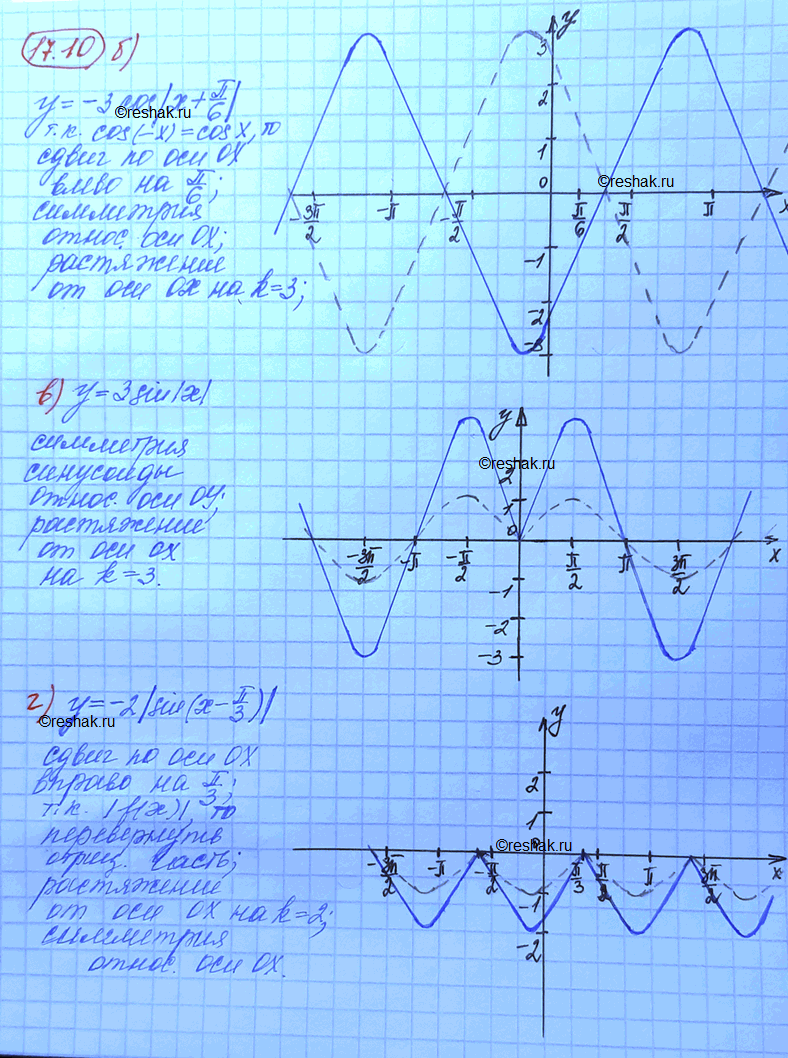 17.10 б)
y = -3 cos|x + π/6|
т.к. cos(-x) = cos x, то
сдвиг по оси OX
влево на π/6;
симметрия
относ. оси OX;
растяжение
от оси OX на k=3;
y
3
2
1
0
-3π/2 -π -π/2 π/6 π/2 π x
-1
-2
-3
©reshak.ru
©reshak.ru
в) y = 3 sin|x|
симметрия
синусоиды
относ. оси OY;
растяжение
от оси OX
на k=3.
y
2
1
0
-3π/2 -π -π/2 π/2 π 3π/2 x
-1
-2
-3
©reshak.ru
г) y = -2|sin(x - π/3)|
©reshak.ru
сдвиг по оси OX
вправо на π/3;
т.к. |f(x)|, то
перевернуть
отриц. часть;
растяжение
от оси OX на k=2;
симметрия
относ. оси OX.
y
2
1
0
-3π/2 -π -π/2 π/3 π/2 π 3π/2 x
-1
-2
©reshak.ru